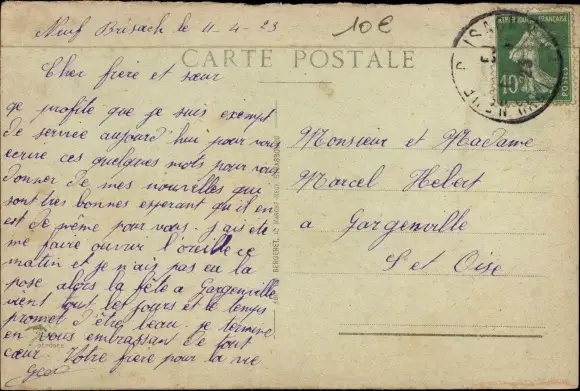 Neuf Brisach le 11-4-23
10€
CARTE POSTALE
Cher frère et sœur
je profite que je suis exempt
de service aujourd'hui pour vous
ecrire ces quelques mots pour vous
donner de mes nouvelles qui
sont très bonnes esperant qu'il en
est de même pour vous. j'ais été
me faire ouvrir l'oreille ce
matin et je n'ais pas eu la
pose alors la fête a Gargenville
vient tout les jours et le temps
promet d'être beau. je termine
en vous embrassan de tout
cœur. Votre frère pour la vie
Monsieur et Madame
Marcel Hébert
a Gargenville
S et Oise
10c
POSTES